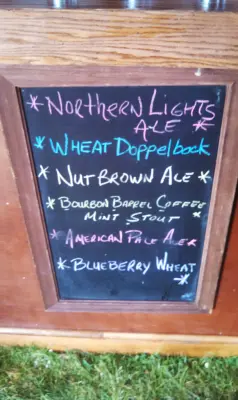 * Northern Lights
Ale *
* Wheat Doppelbock
* Nut Brown Ale *
* Bourbon Barrel Coffee
Mint Stout *
* American Pale Ale *
* Blueberry Wheat *